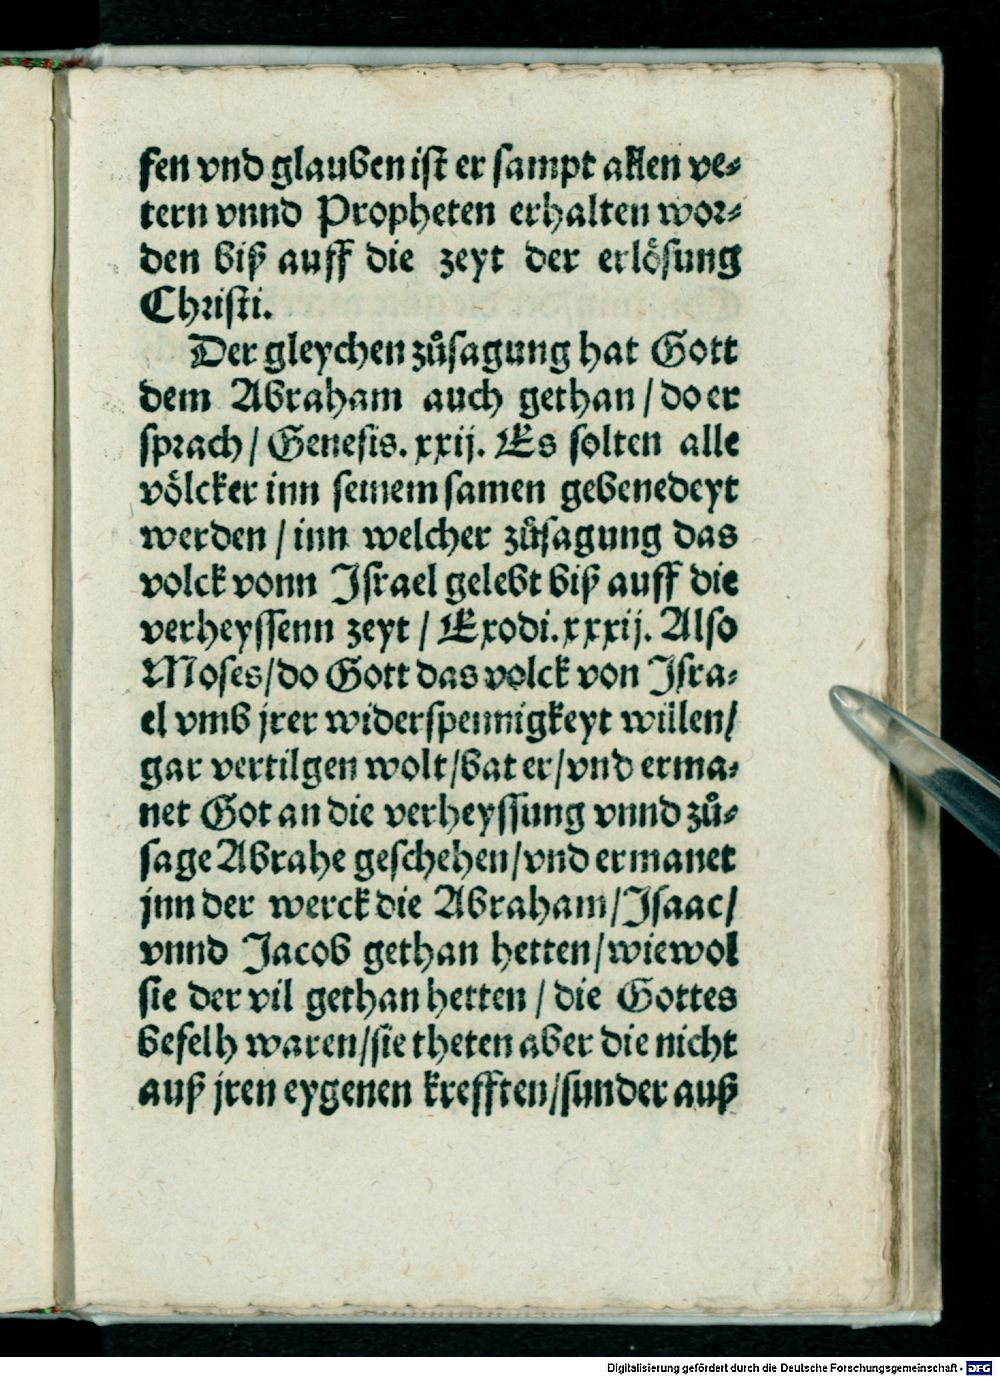 fen vnd glauben ist er sampt allen ve⸗
tern vnnd Propheten erhalten wor⸗
den biß auff die zeyt der erlösung
Christi.
Der gleychen zůsagung hat Gott
dem Abraham auch gethan / do er
sprach / Genesis. xxij. Es solten alle
völcker inn seinem samen gebenedeyt
werden / inn welcher zůsagung das
volck vonn Israel gelebt biß auff die
verheyssenn zeyt / Exodi. xxxij. Also
Moses / do Gott das volck von Isra⸗
el vmb jrer widerspennigkeyt willen /
gar vertilgen wolt / bat er / vnd erma⸗
net Got an die verheyssung vnnd zů⸗
sage Abrahe geschehen / vnd ermanet
jnn der werck die Abraham / Isaac /
vnnd Jacob gethan hetten / wiewol
sie der vil gethan hetten / die Gottes
befelh waren / sie theten aber die nicht
auß jren eygenen krefften / sunder auß
Digitalisierung gefördert durch die Deutsche Forschungsgemeinschaft - DFG